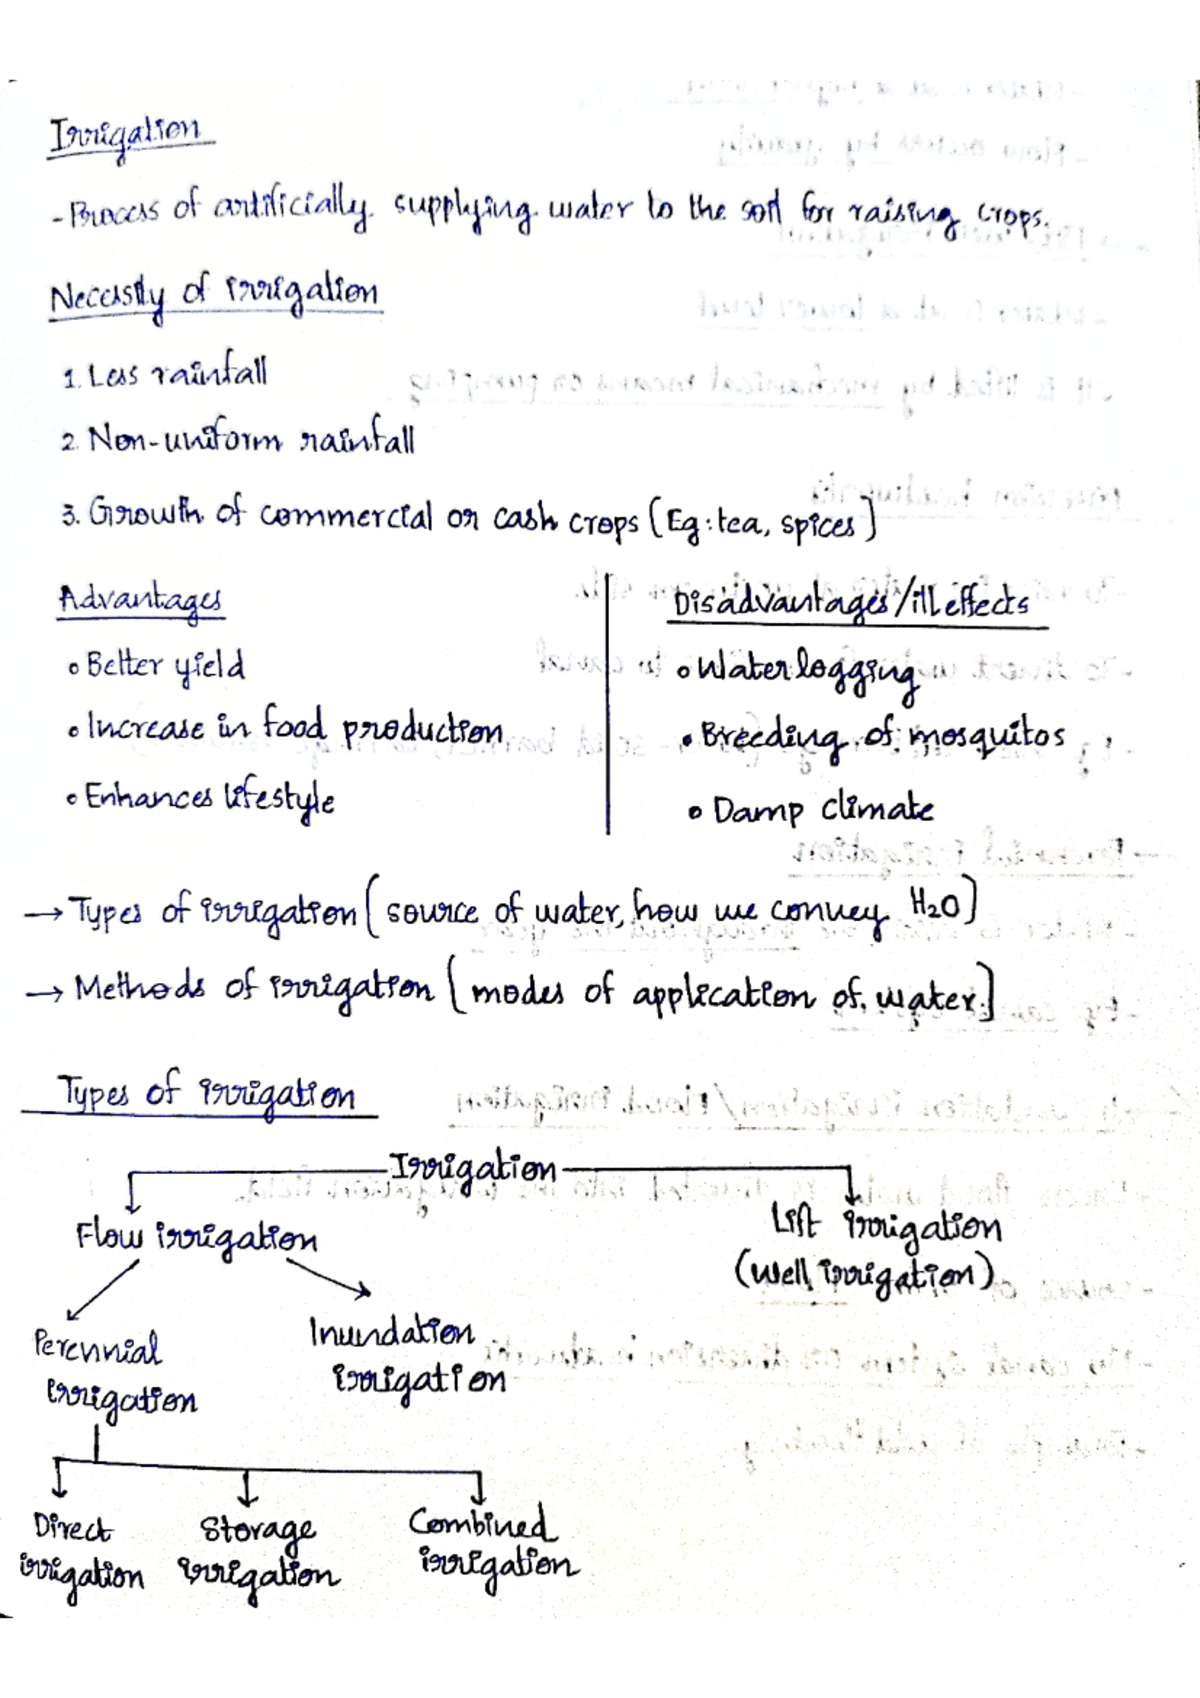 Irrigation
- Process of artificially supplying water to the soil for raising crops.
Necessity of irrigation
1. Less rainfall
2. Non-uniform rainfall
3. Growth of commercial or cash crops (Eg: tea, spices)
Advantages
• Better yield
• Increase in food production
• Enhances lifestyle
Disadvantages/ill effects
• Water logging
• Breeding of mosquitos
• Damp climate
→ Types of irrigation (source of water, how we convey H2O)
→ Methods of irrigation (modes of application of water)
Types of irrigation
Irrigation
Flow irrigation
Lift irrigation
(Well irrigation)
Perennial
irrigation
Inundation
irrigation
Direct
irrigation
Storage
irrigation
Combined
irrigation